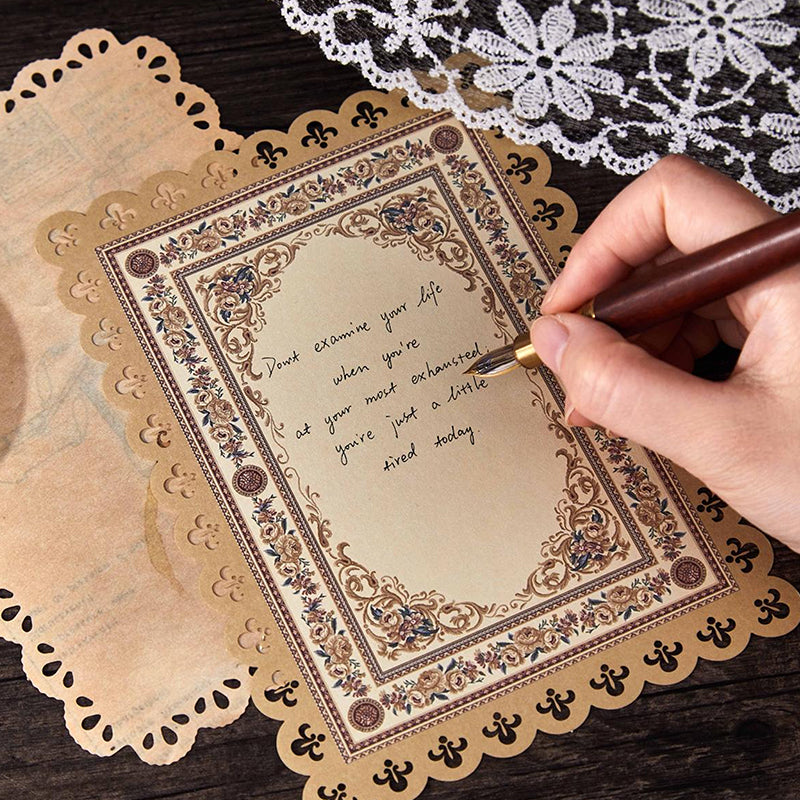 Don't examine your life
when you're
at your most exhausted,
you're just a little
tired today.